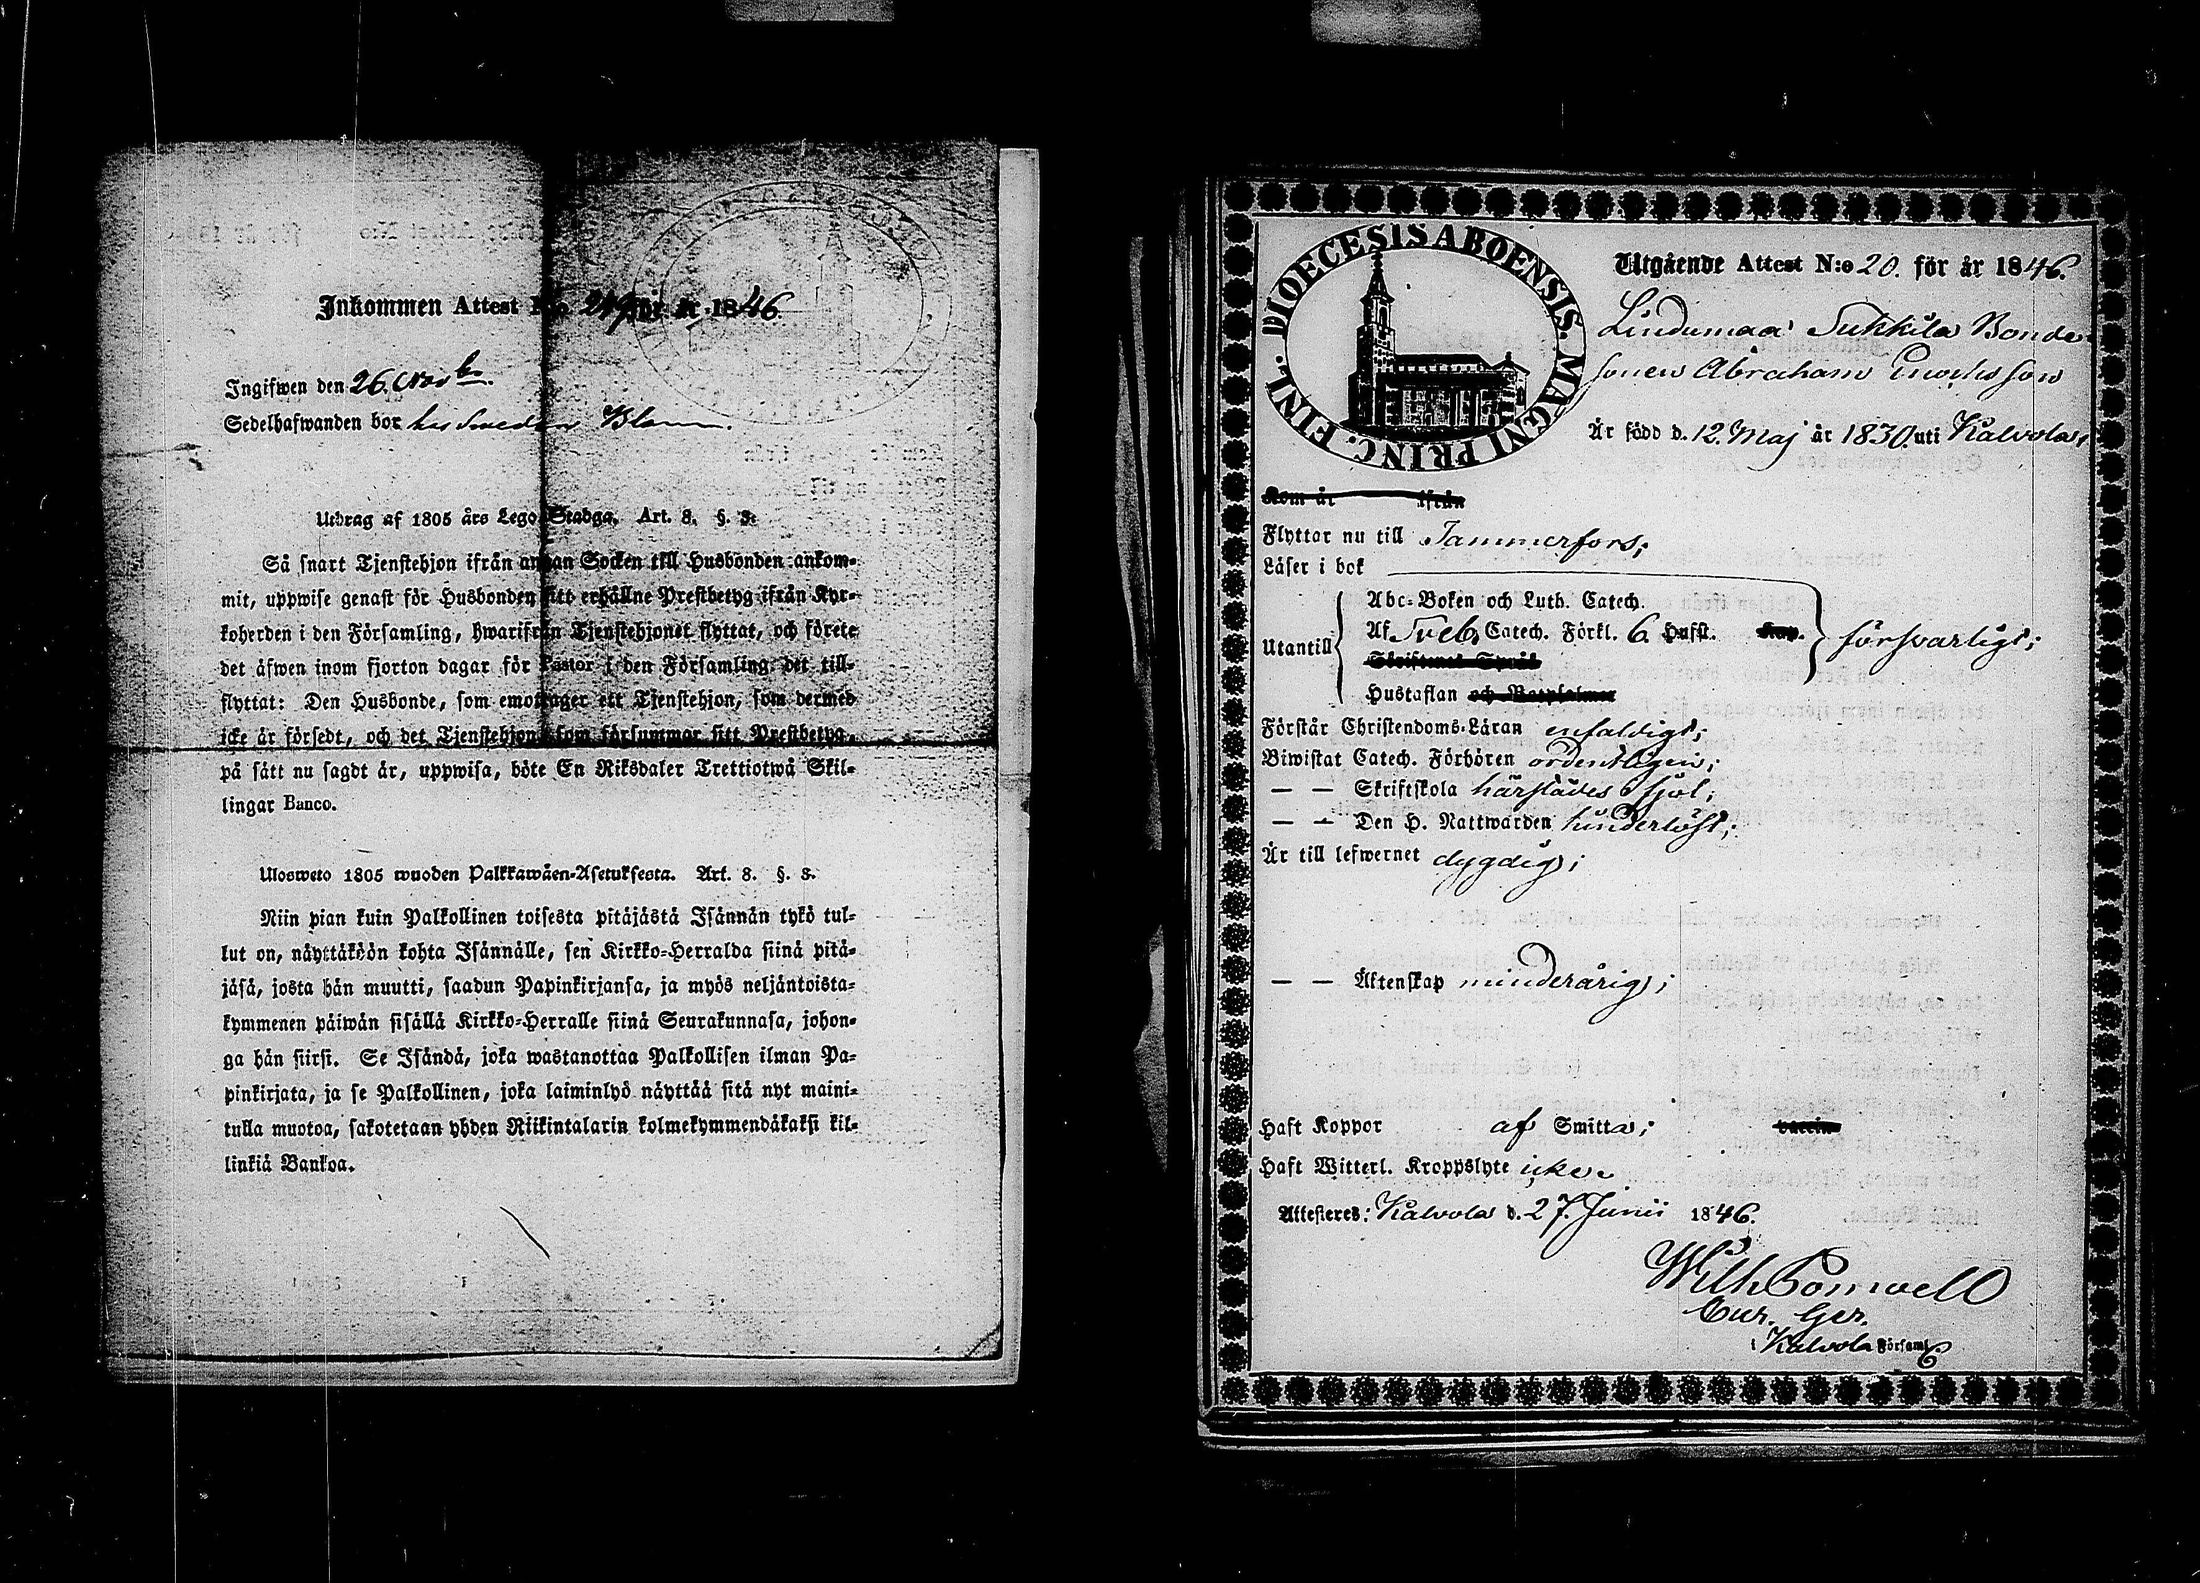 Inkommen Attest N:o 219 för år 1846
Ingifwen den 26. Novbr.
Sedelhafwanden bor hos Smeden Blom.
Utdrag af 1805 års Lego-Stadga. Art. 8. §. 3.
Så snart Tjenstehjon ifrån annan Socken till Husbonden ankom-
mit, uppwise genast för Husbonden sitt erhållne Prestbetyg ifrån Kyr-
koherden i den Församling, hwarifrån Tjenstehjonet flyttat, och förete
det äfwen inom fjorton dagar för Pastor i den Församling det till-
flyttat: Den Husbonde, som emottager ett Tjenstehjon, som dermed
icke är försedt, och det Tjenstehjon som försummar sitt Prestbetyg,
på sätt nu sagdt är, uppwisa, böte En Riksdaler Trettiotwå Skil-
lingar Banco.
Ulosweto 1805 wuoden Palkkawäen-Asetuksesta. Art. 8. §. 3.
Niin pian kuin Palkollinen toisesta pitäjästä Isännän tykö tul-
lut on, näyttäköön kohta Isännälle, sen Kirkko-Herralda siinä pitä-
jäsä, josta hän muutti, saadun Papinkirjansa, ja myös neljäntoista-
kymmenen päiwän sisällä Kirkko-Herralle siinä Seurakunnasa, johon-
ga hän siirsi. Se Isändä, joka wastanottaa Palkollisen ilman Pa-
pinkirjata, ja se Palkollinen, joka laiminlyö näyttää sitä nyt maini-
tulla muotoa, sakotetaan yhden Riikintalarin kolmekymmendäkaksi kil-
linkiä Bankoa.
DIOECESIS ABOENSIS. MAGNI PRINC. FINL.
Utgående Attest N:o 20. för år 1846.
Lindumaa Sukkila Bonde-
sonen Abraham Enochsson
Är född d. 12. Maj år 1830. uti Kalvola;
Kom år ifrån
Flyttar nu till Tammerfors;
Läser i bok
Abc-Boken och Luth. Catech.
Utantill Af Sveb. Catech. Förkl. 6. Hufst. Kap. försvarligt;
Skriftenes Språk
Hustaflan och Botpsalmer
Förstår Christendoms-Läran enfaldigt;
Biwistat Catech. Förhören ordentligen;
— — Skriftskola härstädes sjöl;
— — Den H. Nattwarden hinderlöst;
Är till lefwernet dygdig;
— — Äktenskap minderårig;
Haft Koppor af Smitta; vaccin
Haft Witterl. Kroppslyte icke.
Attesteres: Kalvola d. 27. Junii 1846.
Wilh Ponwell
Cur. Ger.
i Kalvola Församl.